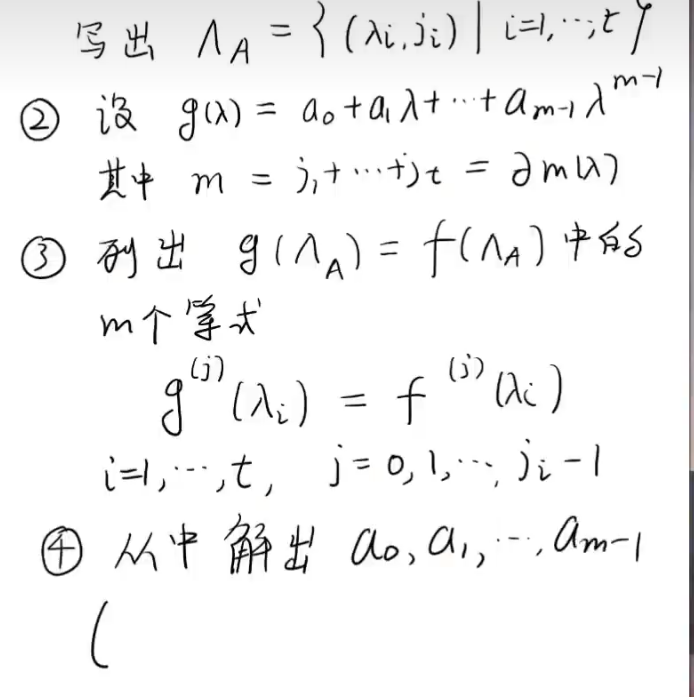 写出 Λ_A = { (λi, ji) | i=1,…,t }
② 设 g(λ) = a₀ + a₁λ + … + a_{m-1} λ^{m-1}
其中 m = j₁ + … + j_t = ∂m(λ)
③ 列出 g(Λ_A) = f(Λ_A) 中的
m个等式
g^{(j)}(λi) = f^{(j)}(λi)
i=1,…,t, j=0,1,…, ji-1
④ 从中解出 a₀, a₁, …, a_{m-1}
(